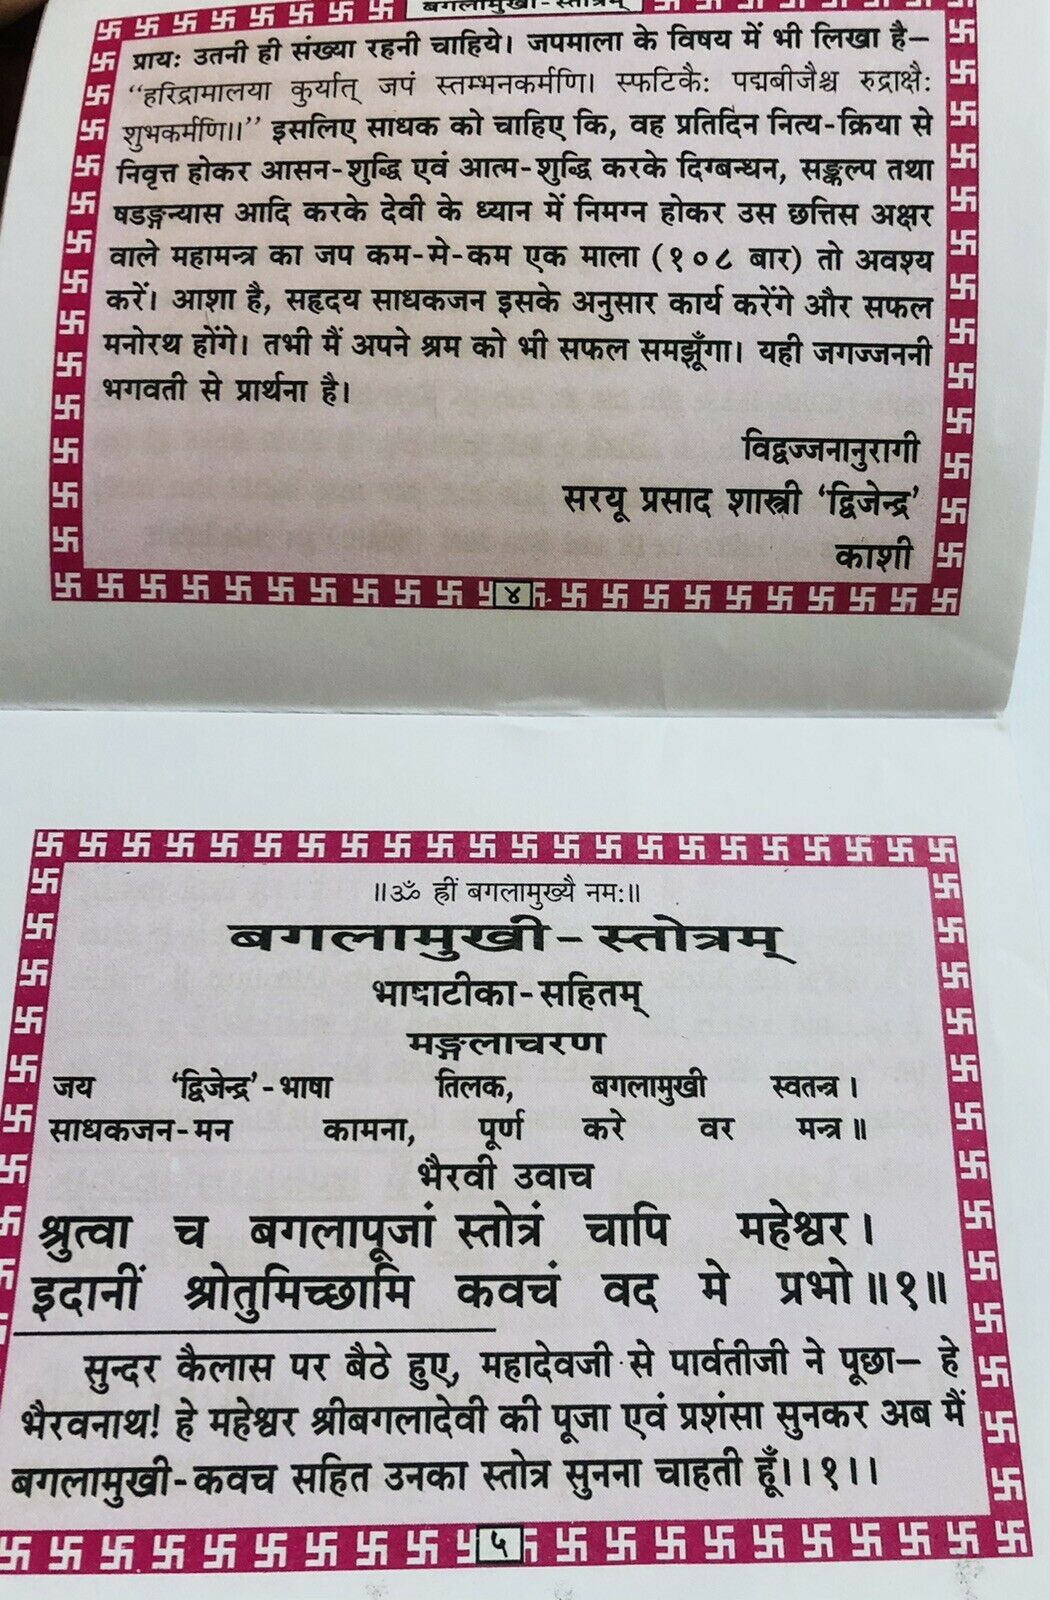 बगलामुखी-स्तोत्रम्
प्रायः उतनी ही संख्या रहनी चाहिये। जपमाला के विषय में भी लिखा है–
“हरिद्रामालया कुर्यात् जपं स्तम्भनकर्मणि। स्फटिकैः पद्मबीजैश्च रुद्राक्षैः
शुभकर्मणि।।” इसलिए साधक को चाहिए कि, वह प्रतिदिन नित्य-क्रिया से
निवृत्त होकर आसन-शुद्धि एवं आत्म-शुद्धि करके दिग्बन्धन, सङ्कल्प तथा
षडङ्गन्यास आदि करके देवी के ध्यान में निमग्न होकर उस छत्तिस अक्षर
वाले महामन्त्र का जप कम-मे-कम एक माला (१०८ बार) तो अवश्य
करें। आशा है, सहृदय साधकजन इसके अनुसार कार्य करेंगे और सफल
मनोरथ होंगे। तभी मैं अपने श्रम को भी सफल समझूँगा। यही जगज्जननी
भगवती से प्रार्थना है।
विद्वज्जनानुरागी
सरयू प्रसाद शास्त्री ‘द्विजेन्द्र’
काशी
४
॥ॐ ह्रीं बगलामुख्यै नमः॥
बगलामुखी-स्तोत्रम्
भाषाटीका-सहितम्
मङ्गलाचरण
जय ‘द्विजेन्द्र’-भाषा तिलक, बगलामुखी स्वतन्त्र।
साधकजन-मन कामना, पूर्ण करे वर मन्त्र॥
भैरवी उवाच
श्रुत्वा च बगलापूजां स्तोत्रं चापि महेश्वर।
इदानीं श्रोतुमिच्छामि कवचं वद मे प्रभो॥१॥
सुन्दर कैलास पर बैठे हुए, महादेवजी से पार्वतीजी ने पूछा– हे
भैरवनाथ! हे महेश्वर श्रीबगलादेवी की पूजा एवं प्रशंसा सुनकर अब मैं
बगलामुखी-कवच सहित उनका स्तोत्र सुनना चाहती हूँ।।१।।
५